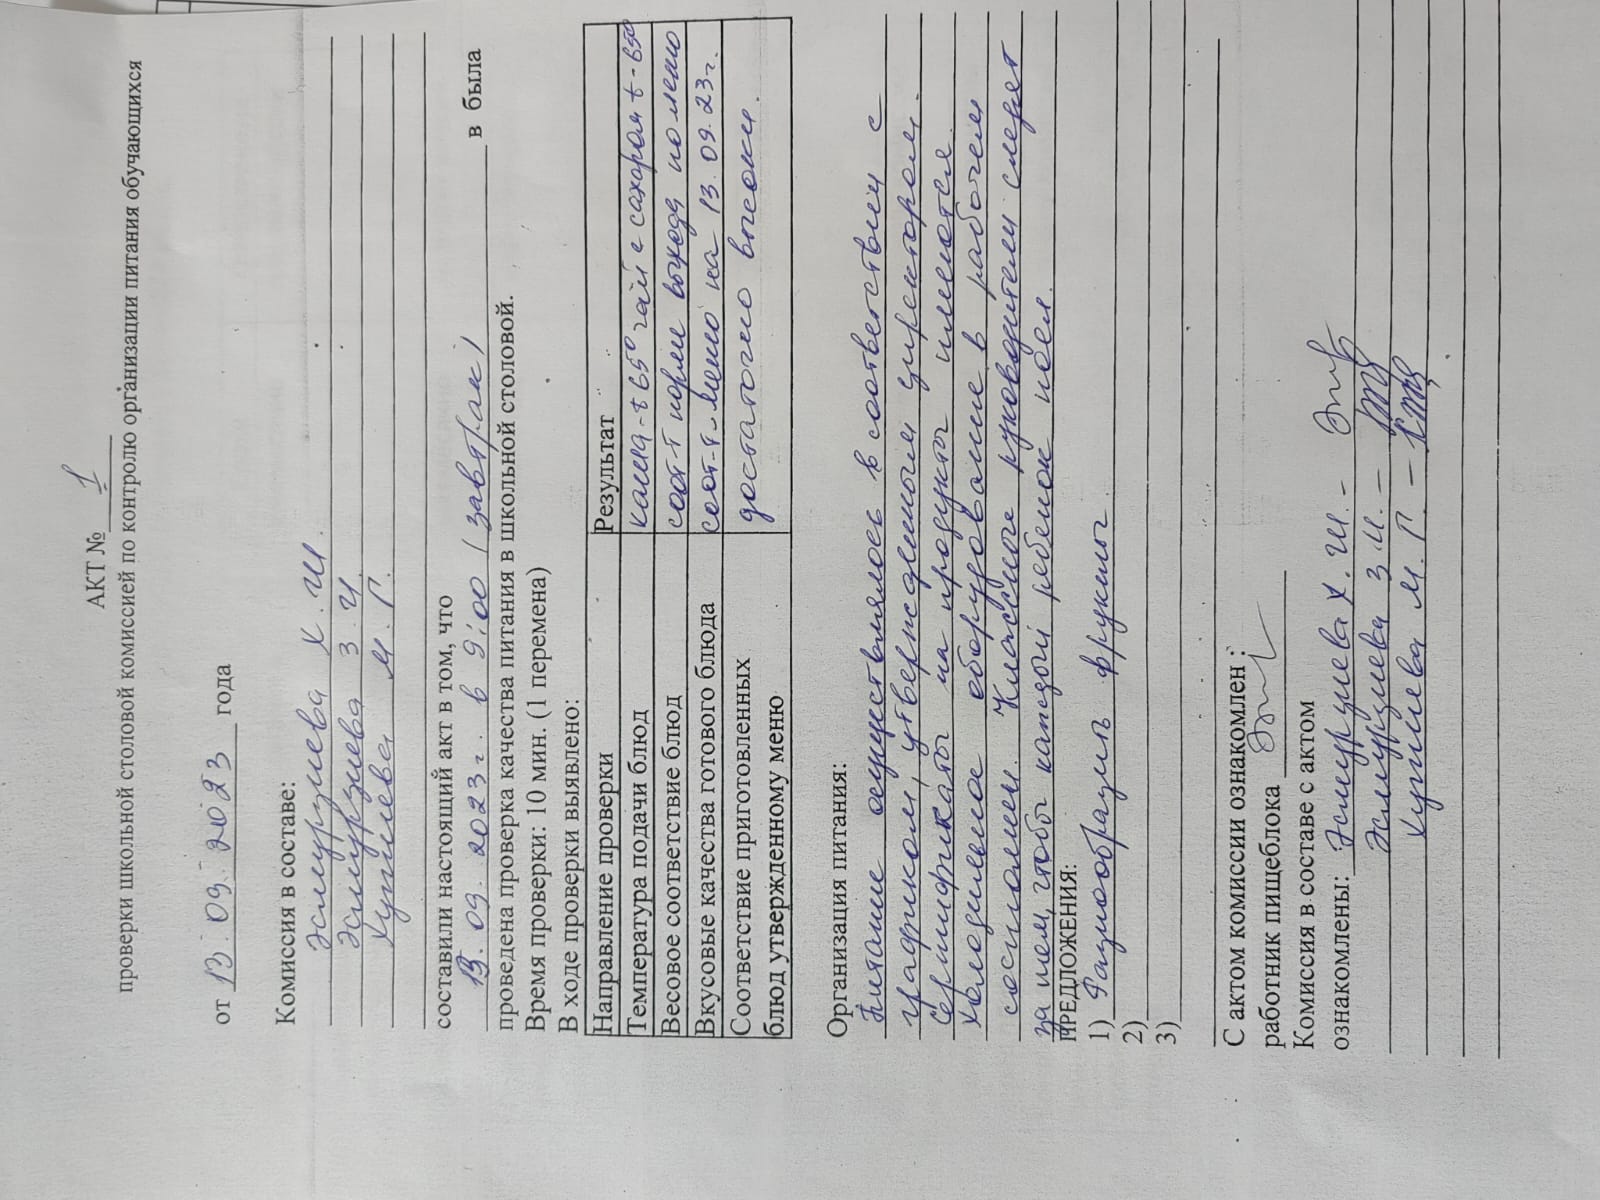 АКТ № 1
проверки школьной столовой комиссией по контролю организации питания обучающихся
от 13.09.2023 года
Комиссия в составе:
Эсмурзиева Х.Ш.
Эсмурзиева З.И
М.Г.
составили настоящий акт в том, что
13.09.2023г. в 9:00 (завтрак) в была
проведена проверка качества питания в школьной столовой.
Время проверки: 10 мин. (1 перемена)
В ходе проверки выявлено:
Направление проверки Результат
Температура подачи блюд каша-t 65° чай с сахаром t-65°
Весовое соответствие блюд соот-т норме выхода по меню
Вкусовые качества готового блюда соот-т меню на 13.09.23г.
Соответствие приготовленных достаточно высоки.
блюд утвержденному меню
Организация питания:
Питание осуществлялось в соответствии с
графиком, утвержденным директором.
Сертификаты на продукты имеются.
Холодильное оборудование в рабочем
состоянии. Классные руководители следят
за тем, чтобы каждый ребенок поел.
ПРЕДЛОЖЕНИЯ:
1) Разнообразить фрукты.
2)
3)
С актом комиссии ознакомлен :
работник пищеблока
Комиссия в составе с актом
ознакомлены: Эсмурзиева Х.Ш. -
Эсмурзиева З.И. -
М.Г. -